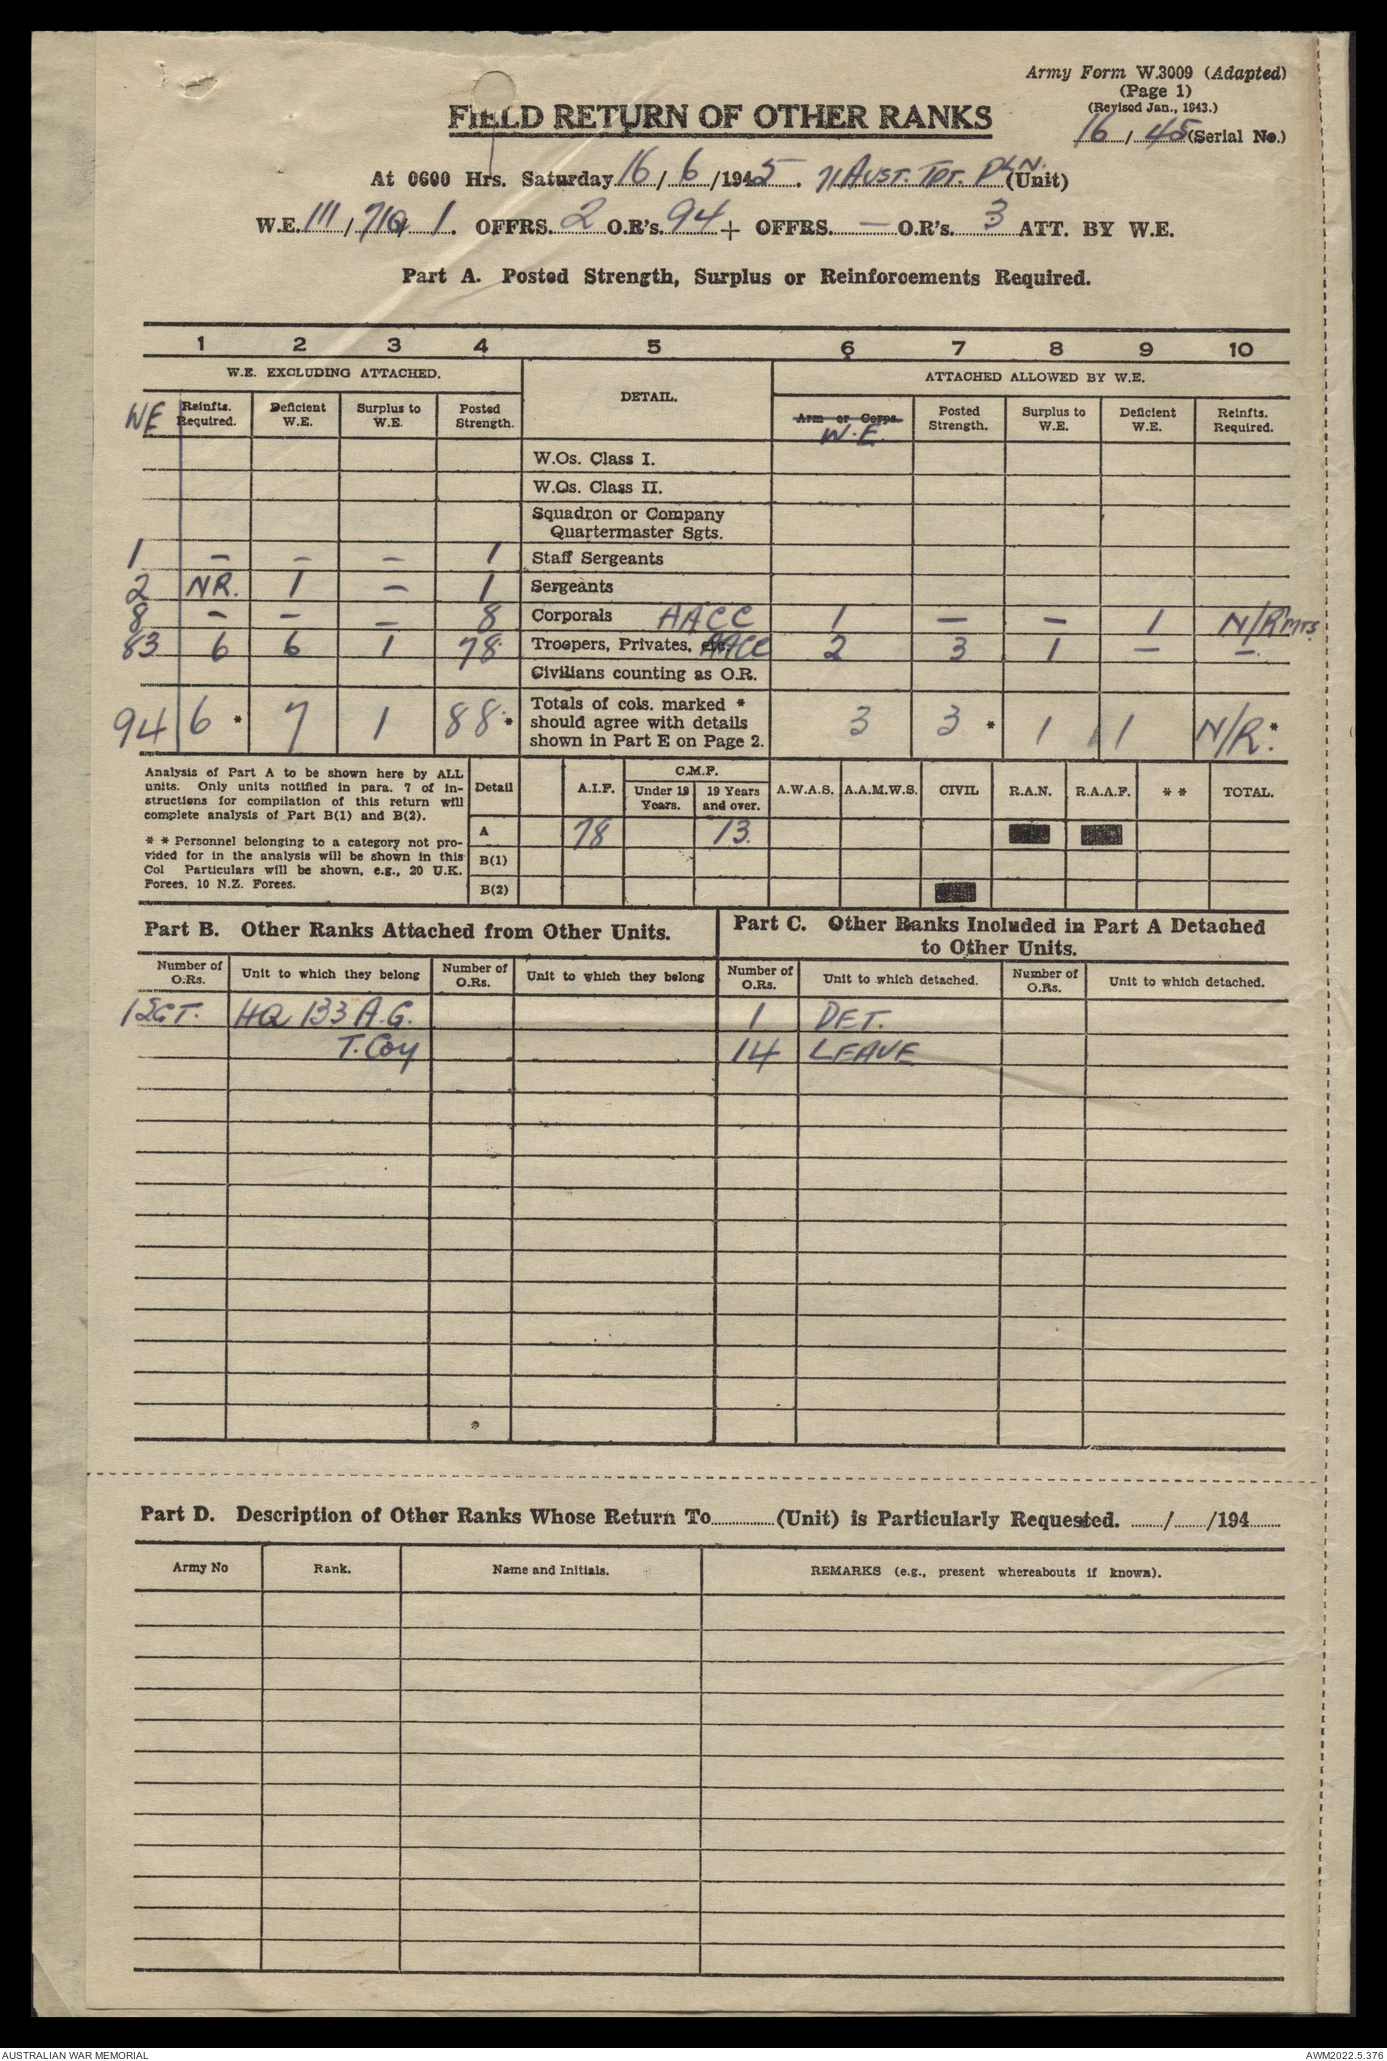 Army Form W.3009 (Adapted)
(Page 1)
(Revised Jan., 1943.)
FIELD RETURN OF OTHER RANKS
16 / 45 (Serial No.)
At 0600 Hrs. Saturday 16 / 6 /1945. 71 AUST. TPT. PLN. (Unit)
W.E. 111 / 71Q 1. OFFRS. 2 O.R's. 94 + OFFRS. — O.R's. 3 ATT. BY W.E.
Part A. Posted Strength, Surplus or Reinforcements Required.
1 2 3 4 5 6 7 8 9 10
W.E. EXCLUDING ATTACHED. DETAIL. ATTACHED ALLOWED BY W.E.
WE Reinfts. Required. Deficient W.E. Surplus to W.E. Posted Strength. Arm or Corps. W.E. Posted Strength. Surplus to W.E. Deficient W.E. Reinfts. Required.
W.Os. Class I.
W.Os. Class II.
Squadron or Company
Quartermaster Sgts.
1 — — — 1 Staff Sergeants
2 NR. 1 — 1 Sergeants
8 — — — 8 Corporals AACC 1 — — 1 N/Rmrs.
83 6 6 1 78 Troopers, Privates, etc. AACC 2 3 1 — —
Civilians counting as O.R.
94 6 * 7 1 88 * Totals of cols. marked * should agree with details shown in Part E on Page 2. 3 3 * 1 1 N/R. *
Analysis of Part A to be shown here by ALL
units. Only units notified in para. 7 of in-
structions for compilation of this return will
complete analysis of Part B(1) and B(2).
* * Personnel belonging to a category not pro-
vided for in the analysis will be shown in this
Col Particulars will be shown, e.g., 20 U.K.
Forces, 10 N.Z. Forces.
Detail A.I.F. C.M.F. Under 19 Years. 19 Years and over. A.W.A.S. A.A.M.W.S. CIVIL R.A.N. R.A.A.F. * * TOTAL.
A 78 13.
B(1)
B(2)
Part B. Other Ranks Attached from Other Units.
Part C. Other Ranks Included in Part A Detached
to Other Units.
Number of O.Rs. Unit to which they belong Number of O.Rs. Unit to which they belong Number of O.Rs. Unit to which detached. Number of O.Rs. Unit to which detached.
1 SGT. HQ 133 A.G. 1 DET.
T. Coy 14 LEAVE
Part D. Description of Other Ranks Whose Return To............(Unit) is Particularly Requested. ....../....../194......
Army No Rank. Name and Initials. REMARKS (e.g., present whereabouts if known).
AUSTRALIAN WAR MEMORIAL AWM2022.5.376